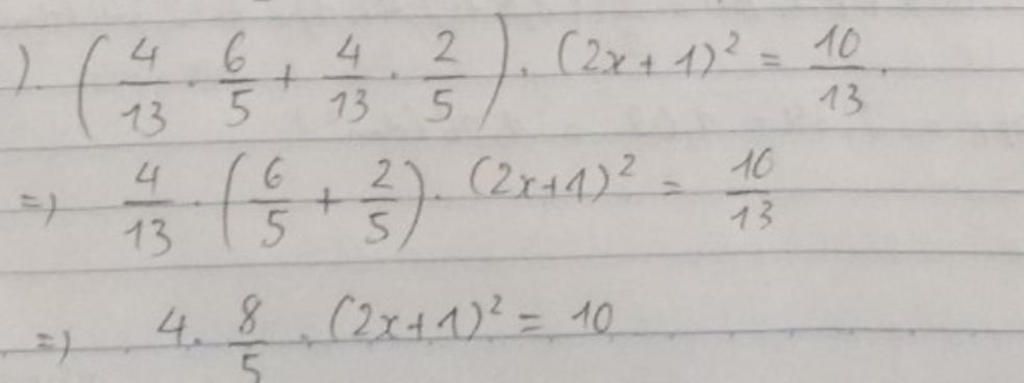 ). (4/13 . 6/5 + 4/13 . 2/5) . (2x+1)² = 10/13.
=) 4/13 . (6/5 + 2/5) . (2x+1)² = 10/13
=) 4 . 8/5 . (2x+1)² = 10